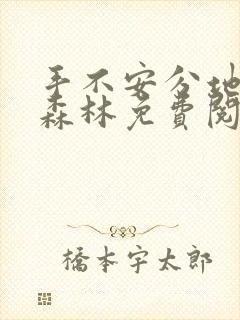 手不安分地
森林免費閱
橋本宇太郎